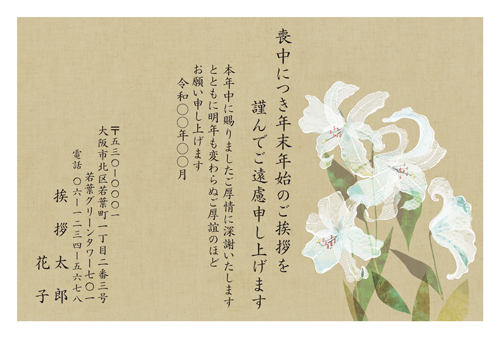 喪中につき年末年始のご挨拶を
謹んでご遠慮申し上げます
本年中に賜りましたご厚情に深謝いたします
とともに明年も変わらぬご厚誼のほど
お願い申し上げます
令和〇〇年〇〇月
〒五三〇-〇〇〇一
大阪市北区若葉町一丁目二番三号
若葉グリーンタワー七〇一
電話 〇六-一二三四-五六七八
挨拶太郎
花子